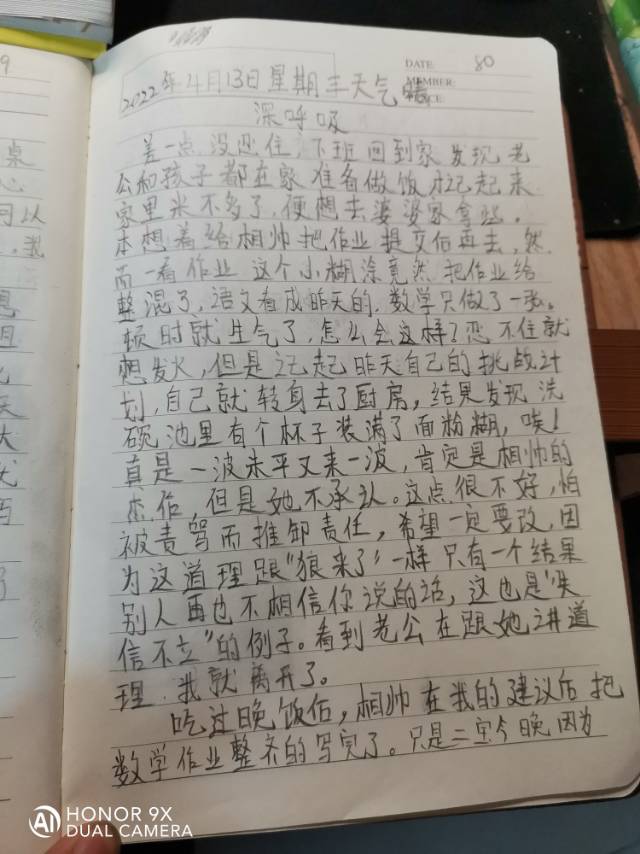 DATE 80
MEMBER:
2022年4月13日星期三天气晴
深呼吸
差一点没忍住,下班回到家发现老
公和孩子都在家准备做饭才记起来
家里米不多了,便想去婆婆家拿些。
本想着给相帅把作业提交后再去,然
而一看作业这个小糊涂竟然把作业给
整混了,语文看成昨天的,数学只做了一张。
顿时就生气了,怎么会这样?忍不住就
想发火,但是记起昨天自己的挑战计
划,自己就转身去了厨房,结果发现洗
碗池里有个杯子装满了面粉糊,唉!
真是一波未平又来一波,肯定是相帅的
杰作,但是她不承认。这点很不好,怕
被责骂而推卸责任,希望一定要改,因
为这道理跟"狼来了"一样只有一个结果
别人再也不相信你说的话,这也是"失
信不立"的例子。看到老公在跟她讲道
理,我就离开了。
吃过晚饭后,相帅在我的建议后把
数学作业整齐的写完了。只是二宝今晚因为
HONOR 9X
DUAL CAMERA